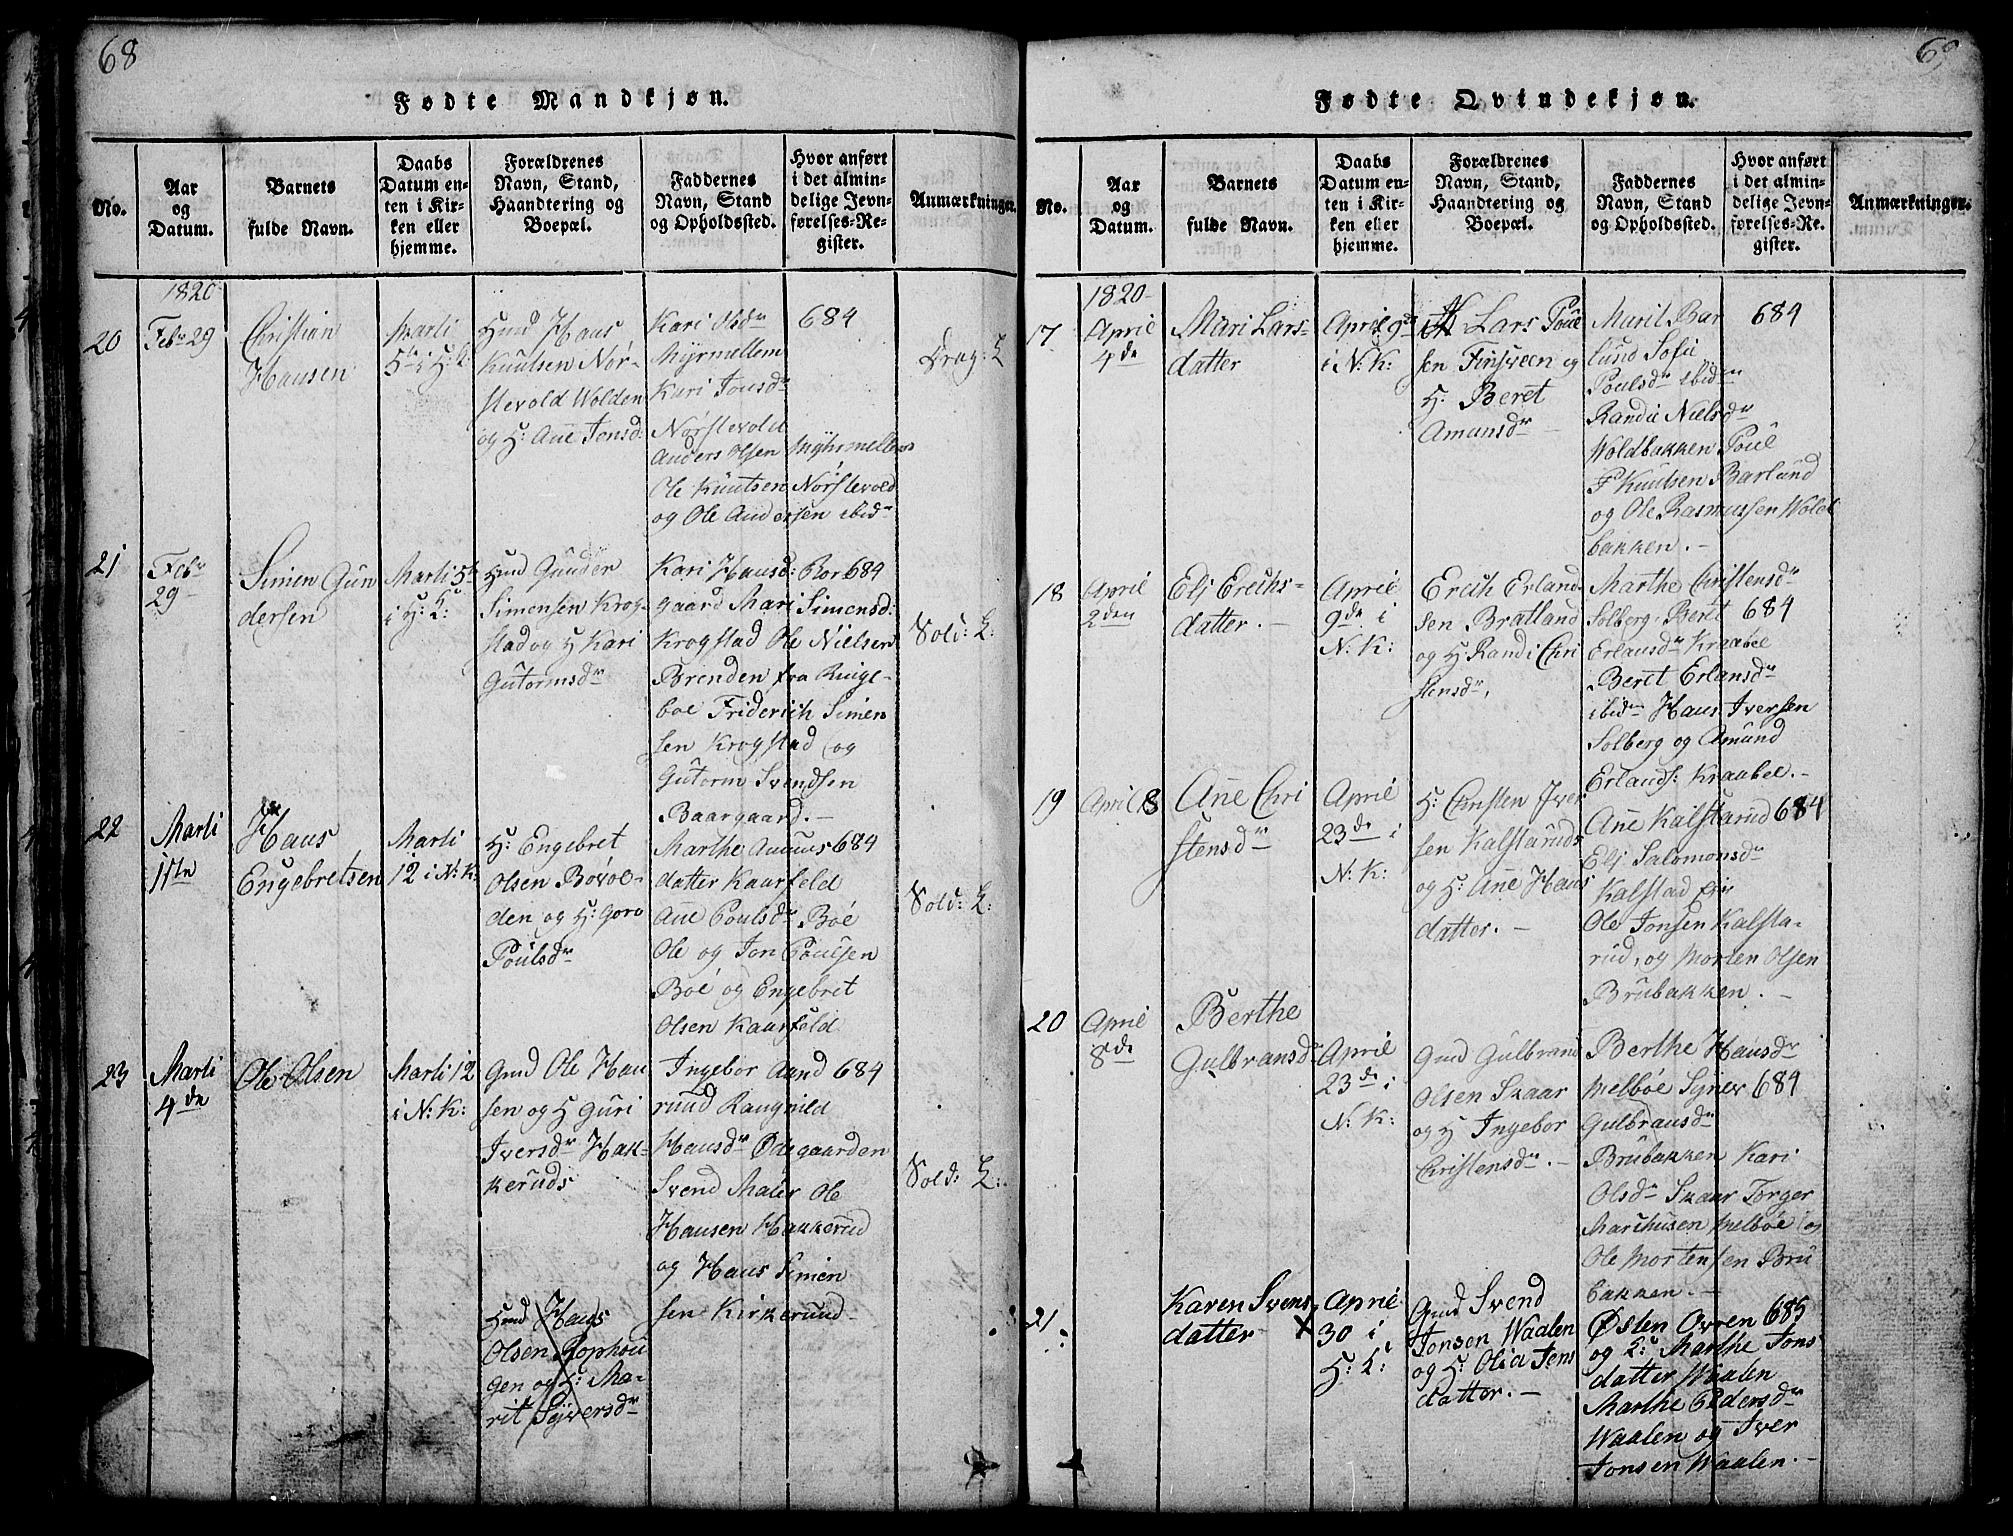 68
Fødte Mandkjøn.
No.
Aar
og
Datum.
Barnets
fulde Navn.
Daabs
Datum en-
ten i Kir-
ken eller
hjemme.
Forældrenes
Navn, Stand,
Haandtering og
Boepæl.
Faddernes
Navn, Stand
og Opholdssted.
Hvor anført
i det almin-
delige Jevn-
førelses-Re-
gister.
Anmærkninger.
20
1820
Febr 29
Christian
Hansen
Marti
5te i H: K:
Hmd Hans
Knutsen Nør-
stevold Wolden
og H: Ane Jonsd:
Kari Olsdr
Myrmellem
Kari Jonsdr
Nørstevold
Anders Olsen Myhrmellem
Ole Knutsen Nørstevold
og Ole Andersen ibidm
684
Drag: L
21
Febr
29
Simen Gun
dersen
Marti 5te
i H: K:
Hmd Gunder
Simensen Krog-
stad og H Kari
Gutormsdr
Kari Hansd: Bor 684
gaard Mari Simensd:
Krogstad Ole Nielsen
Brenden fra Ringe-
boe Friderich Simen
sen Krogstad og
Gutorm Svendsen
Baargaard. -
Sold: L:
22
Marti
11te
Hans
Engebretsen
Marti
12 i N: K:
H: Engebret
Olsen Bøvol-
den og H: Goro
Poulsdr
Marthe Amunds 684
datter Kaarfeld
Ane Poulsdr Böe
Ole og Jon Poulsen
Böe og Engebret
Olsen Kaarfeld
Sold: L:
23
Marti
4de
Ole Olsen
Marti 12
i N: K:
Gmd Ole Han
sen og H Guri
Iversdr Hak-
keruds
Ingebor Aand 684
rund Rangnild
Hansdr Ødegaarden
Svend Maler Ole
Hansen Hakkerud
og Hans Simen
sen Kirkerund
Sold: L:
Hmd Hans
Olsen Rophou
gen og H: Ma-
rit Syversdr
69
Fødte Qvindekjøn.
No.
Aar
og
Datum.
Barnets
fulde Navn.
Daabs
Datum en-
ten i Kir-
ken eller
hjemme.
Forældrenes
Navn, Stand,
Haandtering og
Boepæl.
Faddernes
Navn, Stand
og Opholdssted.
Hvor anført
i det almin-
delige Jevn-
førelses-Re-
gister.
Anmærkninger.
17
1820
April
4de
Mari Lars-
datter
April 9de
i N: K:
Lars Poul
sen Finsveen og
H: Beret
Amunsdr
Marit Bar 684
lund Sofie
Poulsdr ibidm
Randie Nielsdr
Woldbakken Poul
P Knutsen Barlund
og Ole Rasmussen Wold
bakken. -
18
April
2den
Eli Erichs-
datter. -
April
9de i
N: K:
Erich Erland-
sen Bratland
og H: Randi Chri
stensdr,
Marthe Christensdr
Solberg, Beret 684
Erlansdr Kraabel
Beret Erlansdr
ibidm Hans Iversen
Solberg og Amund
Erlands: Kraabel. -
19
April 8
Ane Chri
stensdr
April
23de i
N: K:
H: Christen Iver
sen Kalstaruds
og H: Ane Hans
datter. -
Ane Kalstarud 684
Eli Salomonsdr
Kalstad Eje
Ole Jonsen Kalsta-
rud, og Morten Olsen
Brubakken. -
20
April
8de
Berthe
Gulbransdr
April
23de i
N: K:
Gmd Gulbrand
Olsen Skaar
og H Ingebor
Christensdr. -
Berthe Hansdr
Melböe Syner 684
Gulbransdr
Brubakken Kari
Olsdr Skaar Torger
Marchusen Melböe og
Ole Mortensen Bru
bakken. -
21
Karen Svens
datter X
April
30 i
H: K:
Gmd Svend
Jonsen Waalen
og H: Olia Jens
datter. -
Østen Ovren 685
og L: Marthe Jons
datter Waalen
Marthe Pedersdr
Waalen og Iver
Jonsen Waalen. -